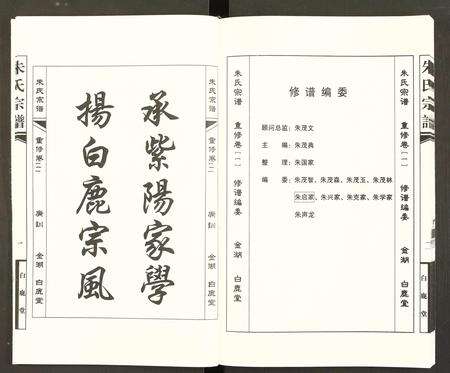 朱氏宗譜
白鹿堂
朱氏宗谱
重修卷(一)
廣訓
金湖
白鹿堂
承紫陽家學
揚白鹿宗風
朱氏宗谱
重修卷(一)
修谱编委
金湖
白鹿堂
修谱编委
顾问总监：朱茂文
主　编：朱茂典
整　理：朱国家
编　委：朱茂智、朱茂森、朱茂玉、朱茂林
朱启家、朱兴家、朱克家、朱学家
朱声龙
朱氏宗谱
重修卷(一)
修谱编委
金湖
白鹿堂
朱氏宗譜
白鹿堂